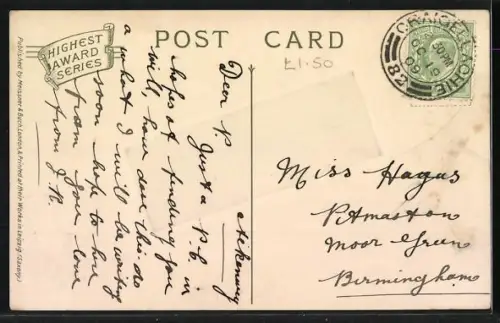 POST CARD
HIGHEST
AWARD
SERIES
Published by Meissner & Buch, London, & Printed at their Works in Leipzig (Saxony).
£1.50
CRAIGELLACHIE
OC 10
09
Dear P.
Just a P.C. in
hopes of finding you
will have done this. do
a what I will be writing
soon hope to hear
from you love
from J.R.
Miss Hagus
Pitmaston
Moor Green
Birmingham